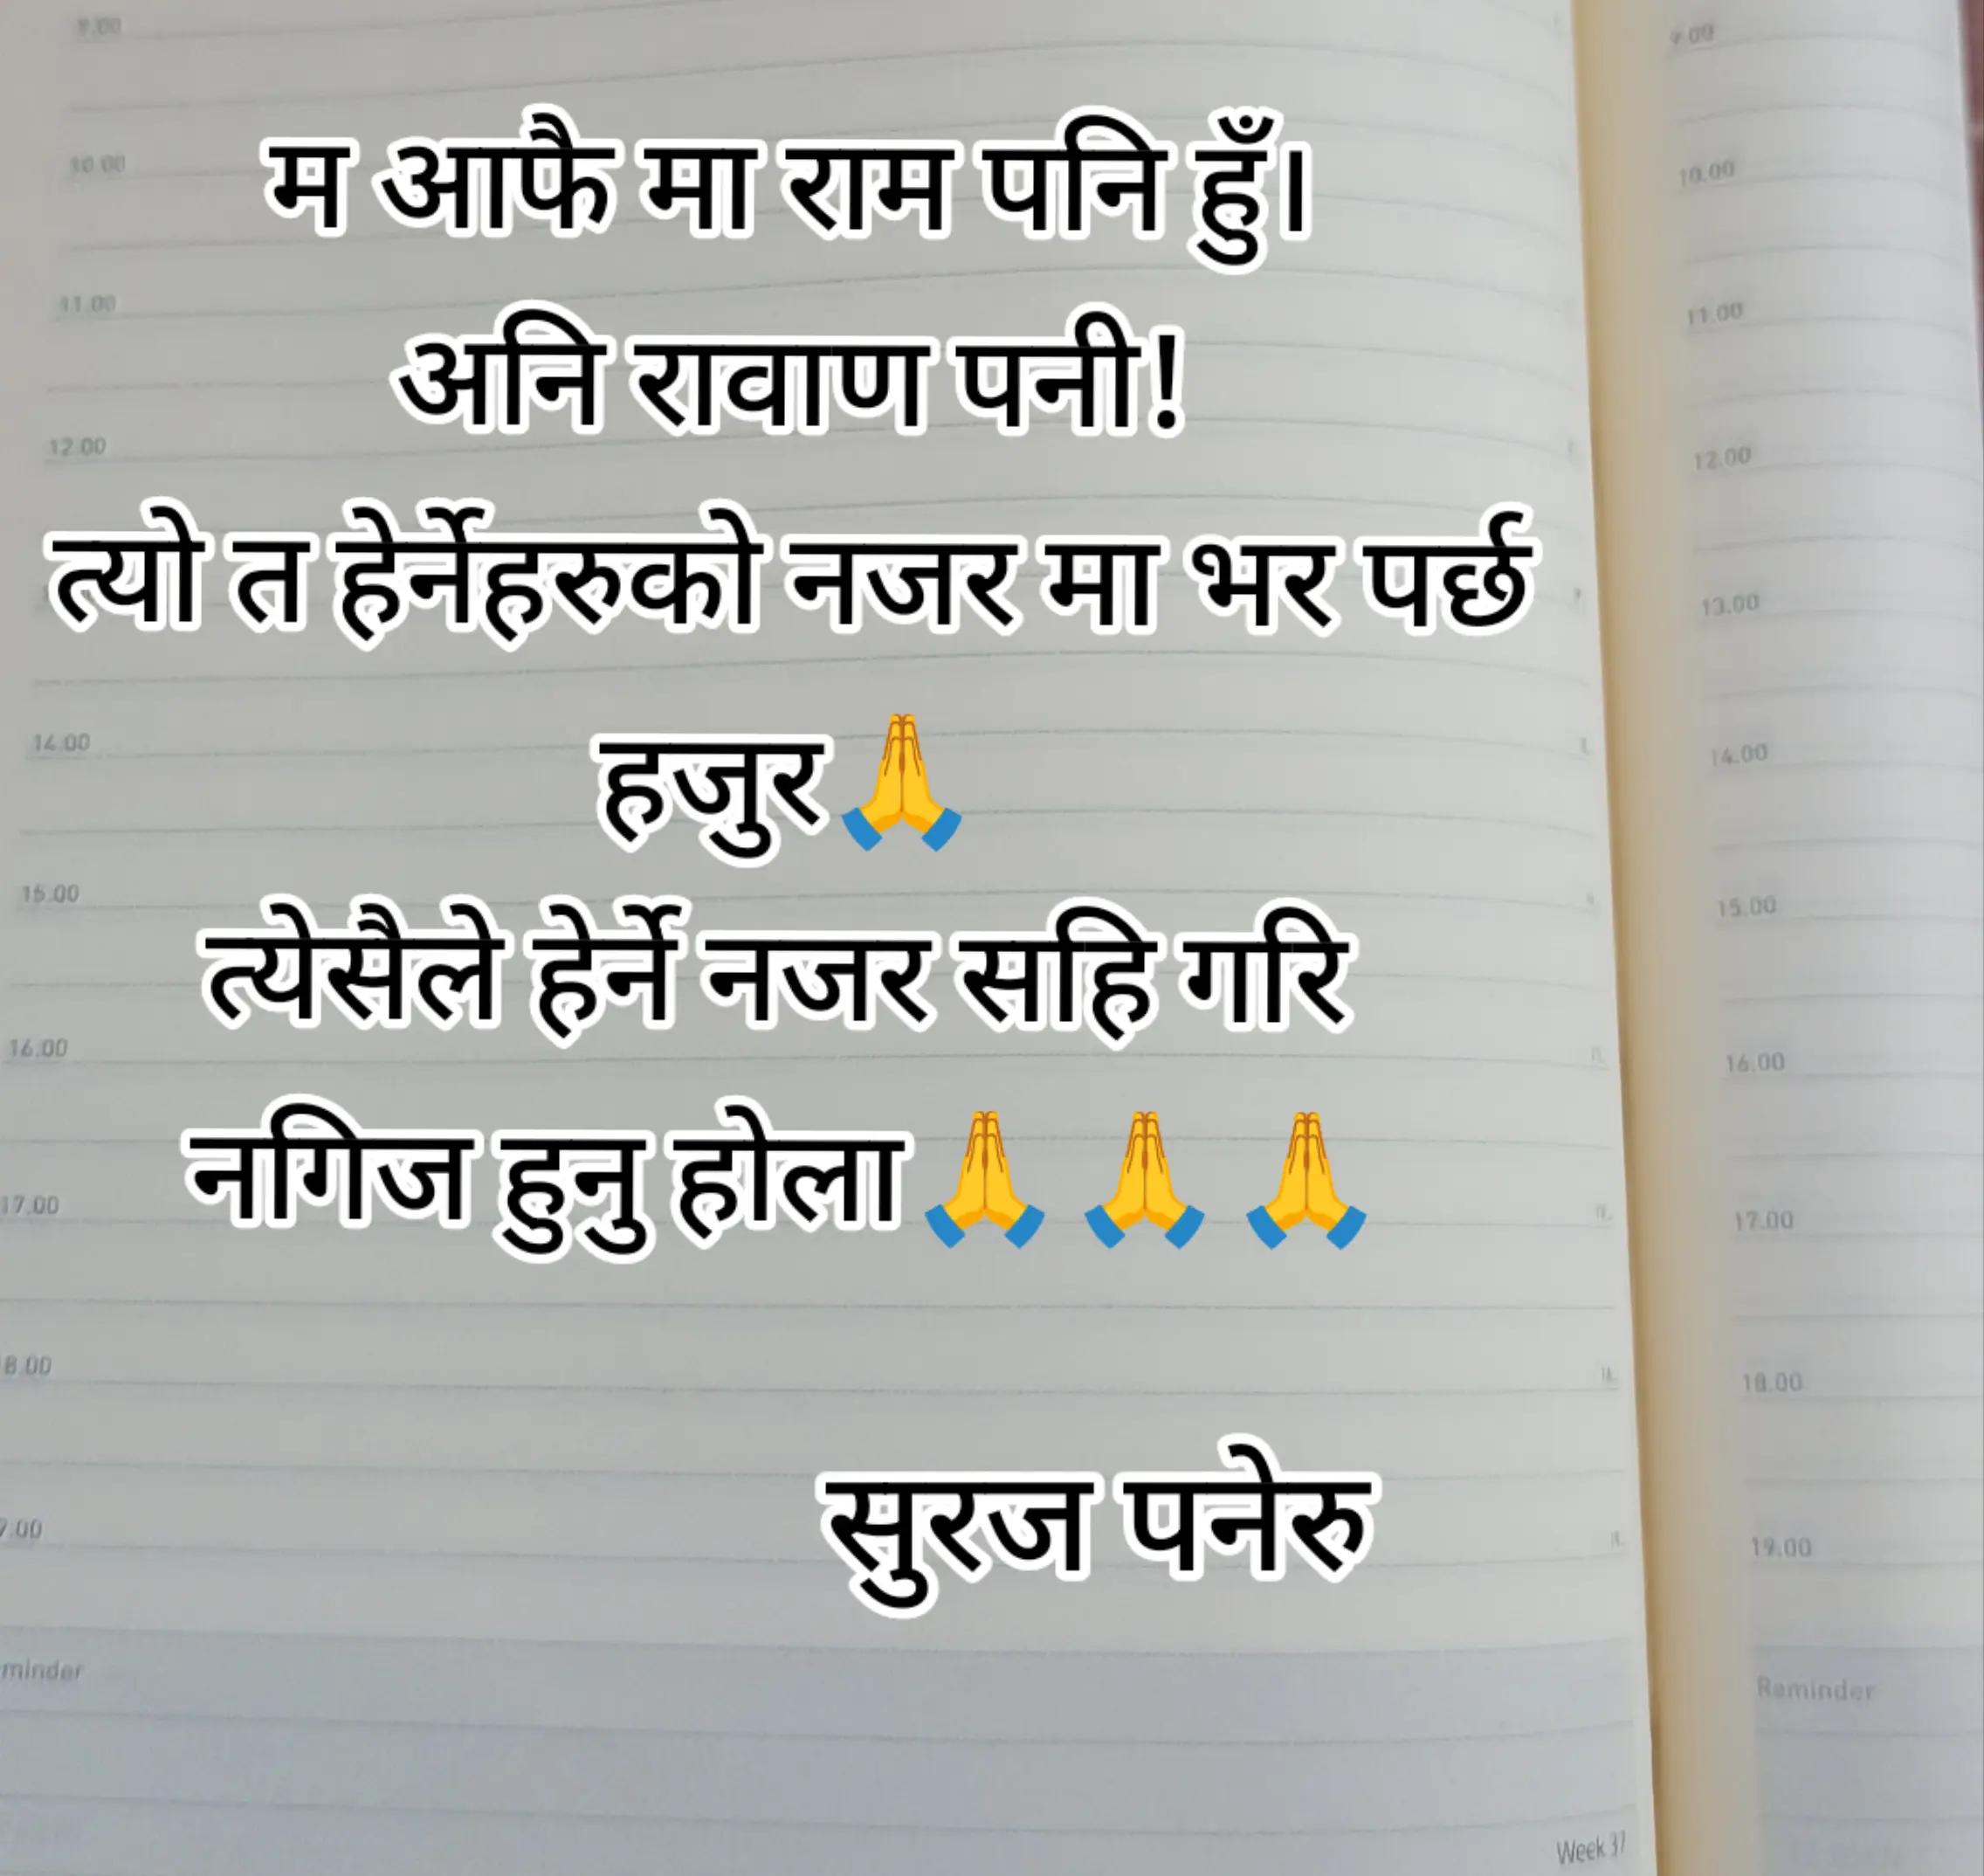 म आफै मा राम पनि हुँ।
अनि रावाण पनी!
त्यो त हेर्नेहरुको नजर मा भर पर्छ
हजुर🙏
त्येसैले हेर्ने नजर सहि गरि
नगिज हुनु होला🙏 🙏 🙏
सुरज पनेरु
9.00
10.00
11.00
12.00
14.00
15.00
16.00
17.00
8.00
9.00
minder
Week 37
9.00
10.00
11.00
12.00
13.00
14.00
15.00
16.00
17.00
18.00
19.00
Reminder